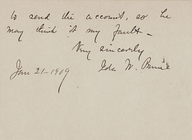 to send the account, so he
may think it my fault -
Very sincerely
Jan 21 - 1909 Ida W.